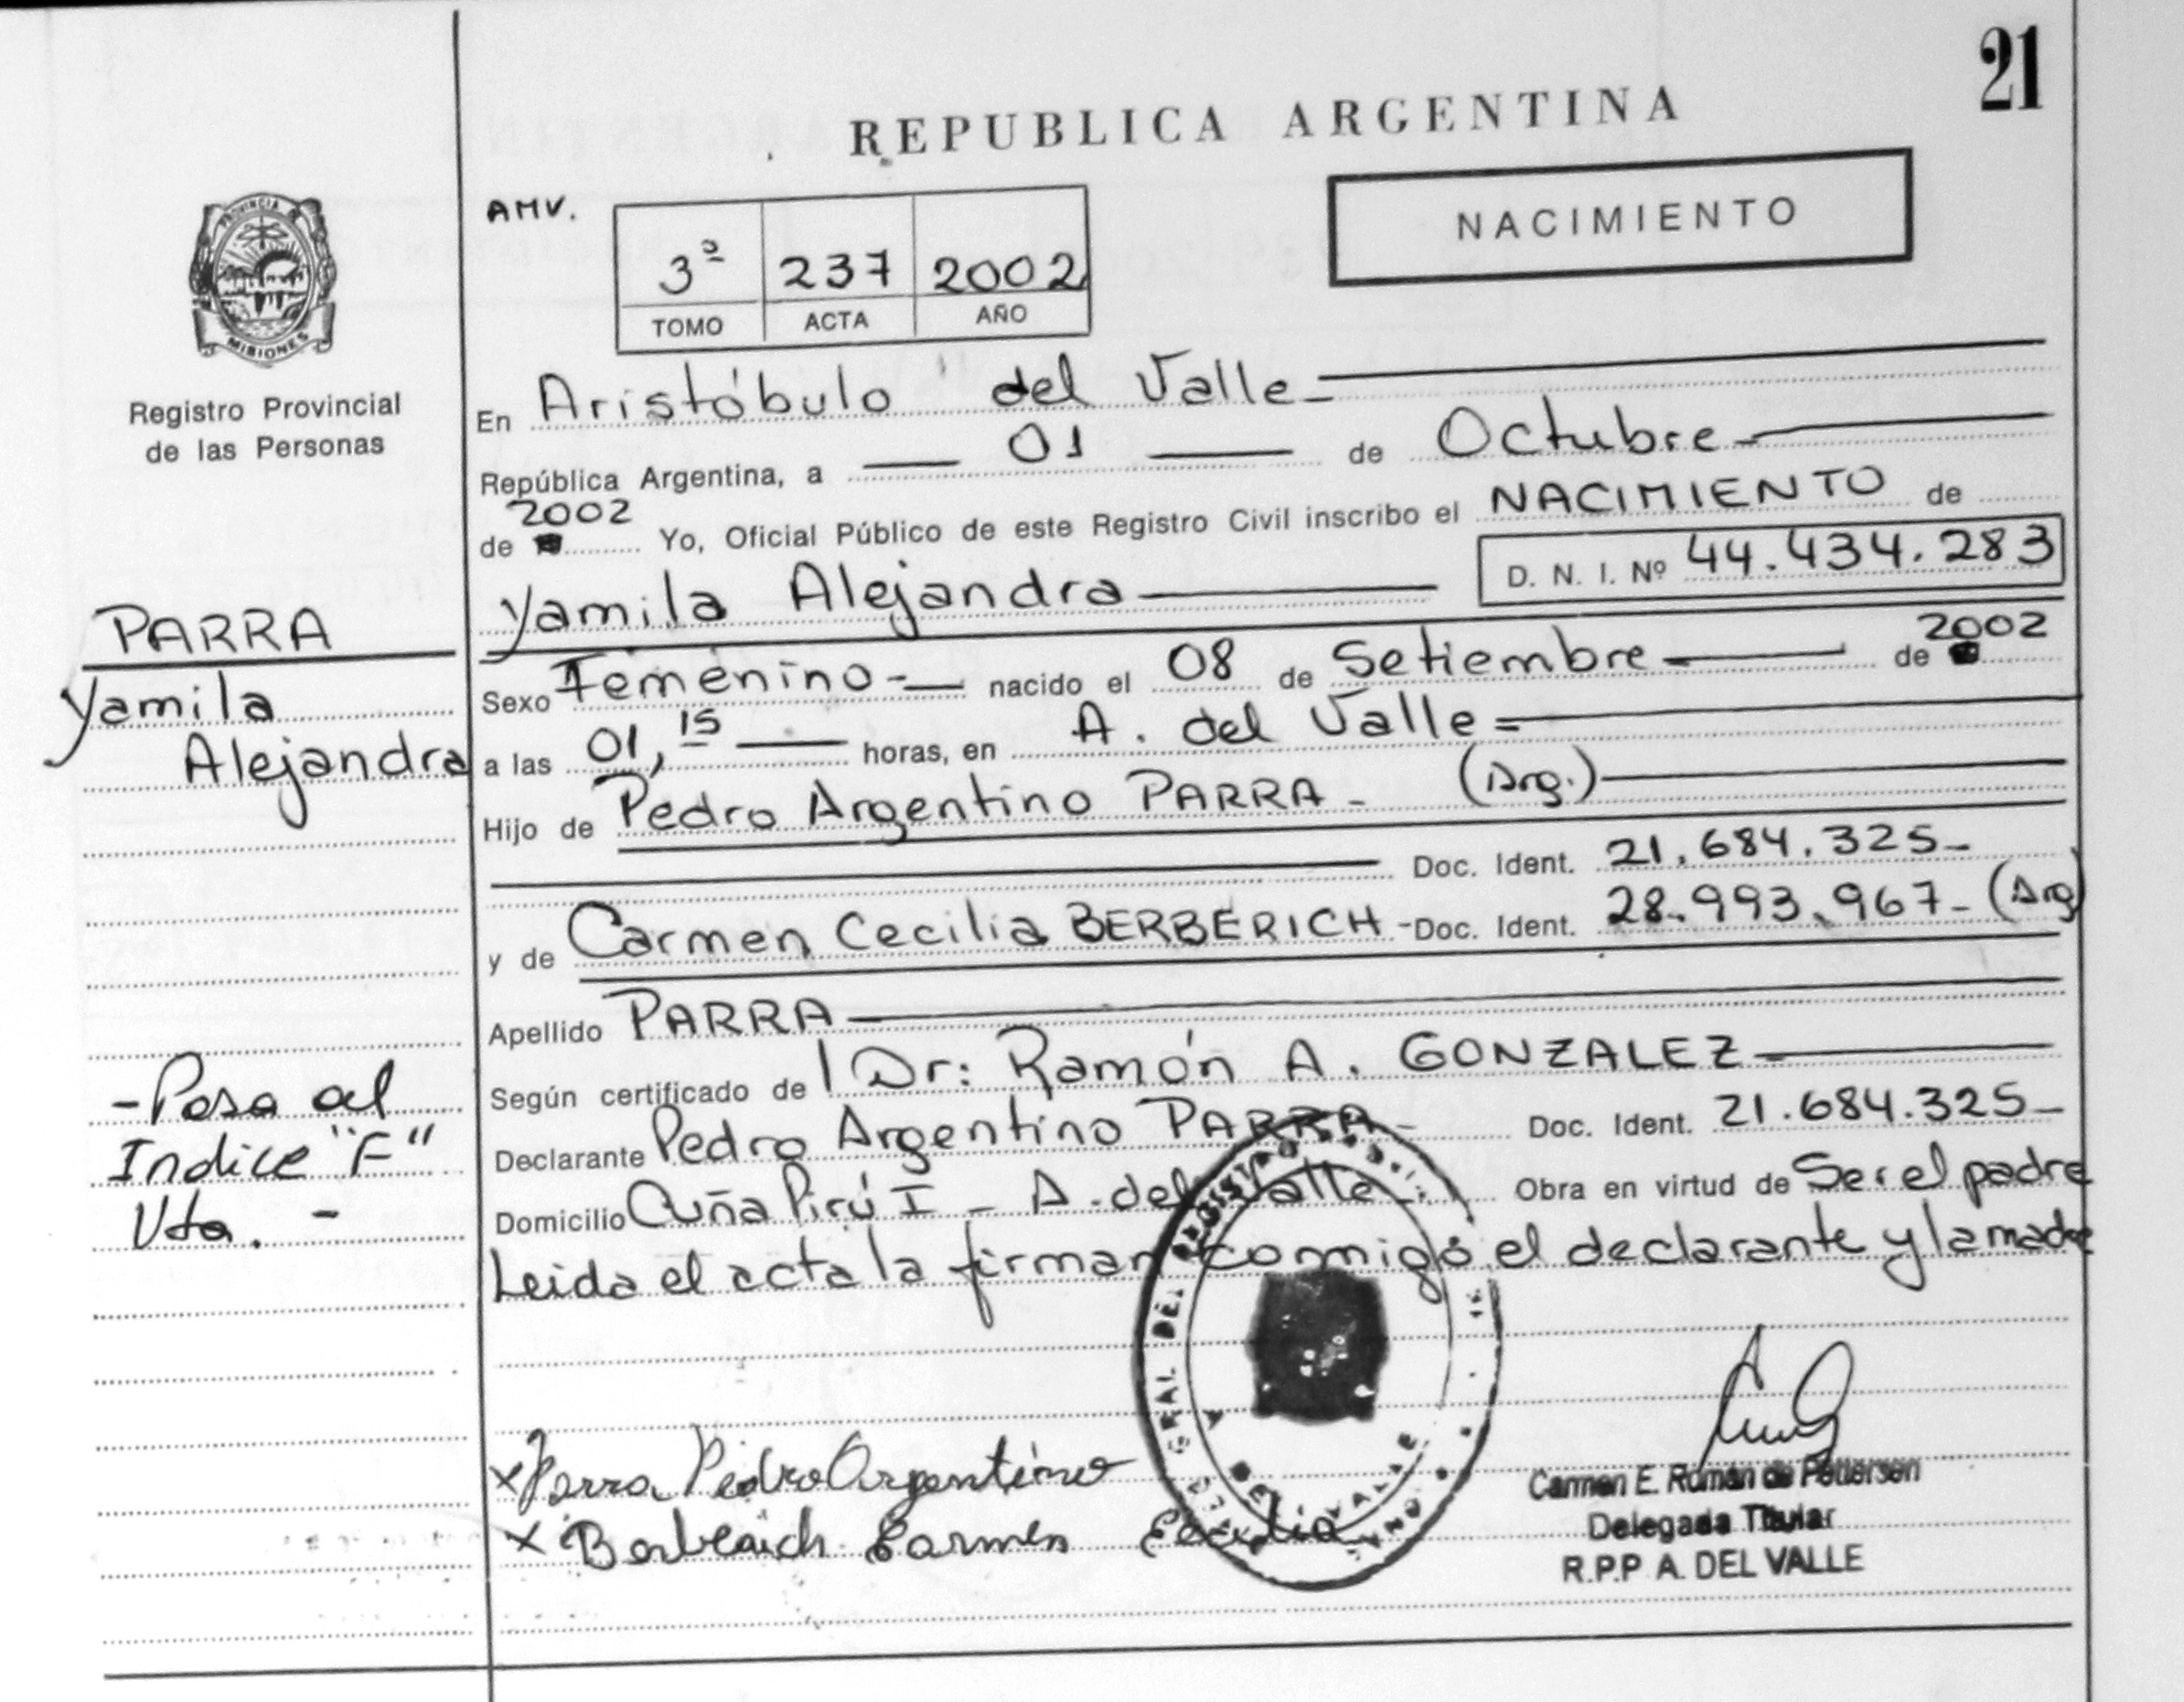 21
REPUBLICA ARGENTINA
NACIMIENTO
AMV.
3ª 237 2002
TOMO ACTA AÑO
PROVINCIA DE
MISIONES
Registro Provincial
de las Personas
En Aristóbulo del Valle
República Argentina, a 01 de Octubre
2002
de Yo, Oficial Público de este Registro Civil inscribo el NACIMIENTO de
D. N. I. Nº 44.434.283
Yamila Alejandra
PARRA
Yamila
Alejandra
2002
Sexo Femenino nacido el 08 de Setiembre de
a las 01,15 horas, en A. del Valle
Hijo de Pedro Argentino PARRA - (Arg.)
Doc. Ident. 21.684.325-
y de Carmen Cecilia BERBERICH -Doc. Ident. 28.993.967- (Arg)
Apellido PARRA
Según certificado de Dr: Ramón A. GONZALEZ
Declarante Pedro Argentino PARRA- Doc. Ident. 21.684.325-
Domicilio Cuña Pirú I - A. del Valle. Obra en virtud de Ser el padre
Leida el acta la firman conmigo el declarante y la madre
-Pasa al
Indice "F"
Vta. -
x Parra Pedro Argentino
x Berberich Carmen Cecilia
Carmen E. Román de Pettersen
Delegada Titular
R.P.P A. DEL VALLE